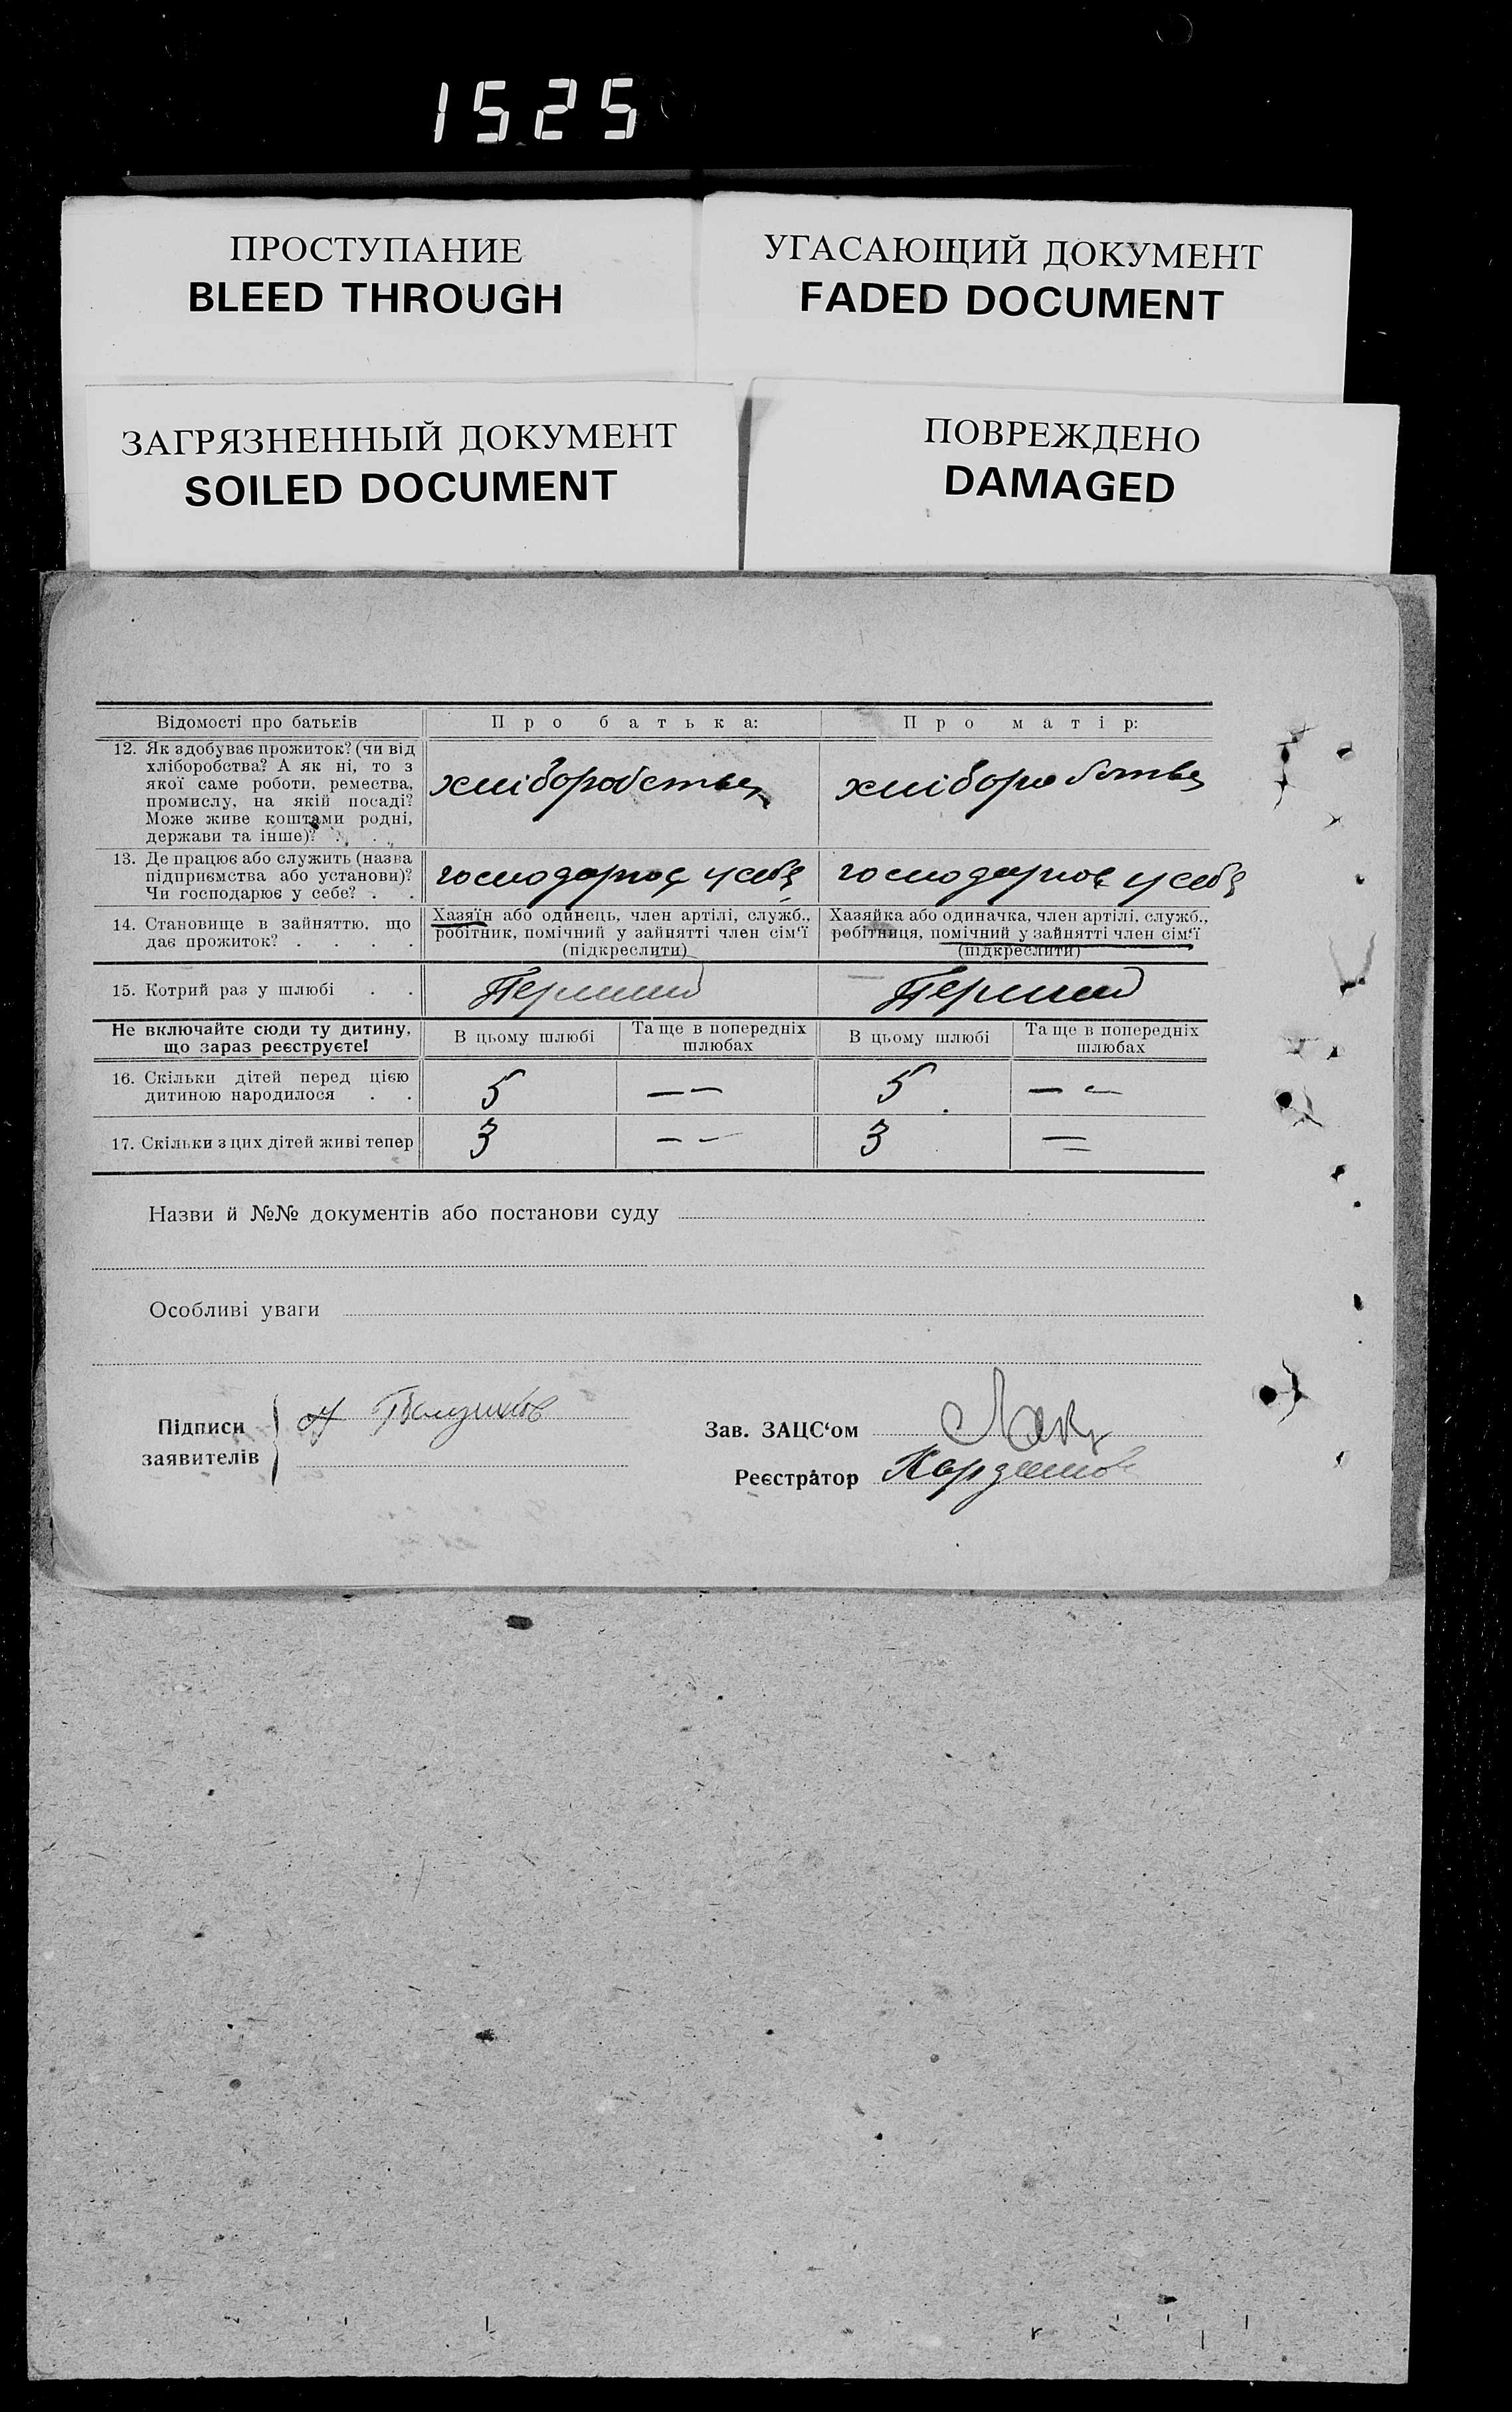 1525
ПРОСТУПАНИЕ
BLEED THROUGH
УГАСАЮЩИЙ ДОКУМЕНТ
FADED DOCUMENT
ЗАГРЯЗНЕННЫЙ ДОКУМЕНТ
SOILED DOCUMENT
ПОВРЕЖДЕНО
DAMAGED
Відомості про батьків
Про батька:
Про матір:
12. Як здобуває прожиток? (чи від
хліборобства? А як ні, то з
якої саме роботи, ремества,
промислу, на якій посаді?
Може живе коштами родні,
держави та інше)? . . .
хліборобство
хліборобство
13. Де працює або служить (назва
підприємства або установи)?
Чи господарює у себе? . .
господарює у себе
господарює у себе
14. Становище в зайняттю, що
дає прожиток? . . . .
Хазяїн або одинець, член артілі, служб.,
робітник, помічний у зайнятті член сім'ї
(підкреслити)
Хазяйка або одиначка, член артілі, служб.,
робітниця, помічний у зайнятті член сім'ї
(підкреслити)
15. Котрий раз у шлюбі . .
Перший
Перший
Не включайте сюди ту дитину,
що зараз реєструєте!
В цьому шлюбі
Та ще в попередніх
шлюбах
В цьому шлюбі
Та ще в попередніх
шлюбах
16. Скільки дітей перед цією
дитиною народилося . .
5
— —
5
— —
17. Скільки з цих дітей живі тепер
3
— —
3
—
Назви й №№ документів або постанови суду
Особливі уваги
Підписи
заявителів
Зав. ЗАЦС'ом
Реєстратор